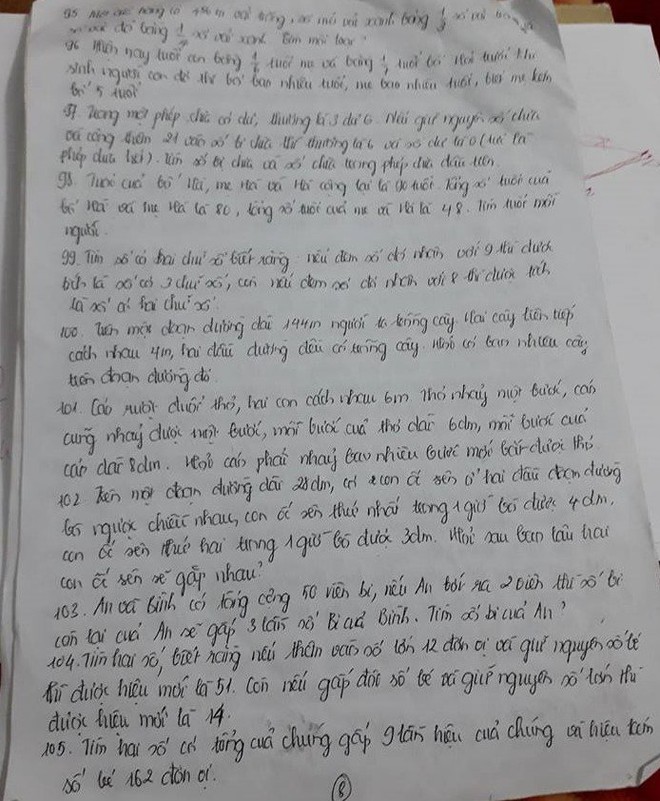 95. cửa hàng có m vải trắng, số m vải xanh bằng 1/3 số vải
số vải đỏ bằng số vải xanh. Tìm mỗi loại?
96. Hiện nay tuổi con bằng tuổi mẹ và bằng 1/7 tuổi bố. Hỏi trước khi
sinh người con đó thì bố bao nhiêu tuổi, mẹ bao nhiêu tuổi, biết mẹ kém
bố 5 tuổi
97. Trong một phép chia có dư, thương là 3 dư 6. Nếu giữ nguyên số chia
và cộng thêm 21 vào số bị chia thì thương là 6 và số dư là 0 (tức là
phép chia hết). Tìm số bị chia và số chia trong phép chia đầu tiên.
98. Tuổi của bố Hà, mẹ Hà và Hà cộng lại là 90 tuổi. Tổng số tuổi của
bố Hà và mẹ Hà là 80, tổng số tuổi của mẹ và Hà là 48. Tìm tuổi mỗi
người.
99. Tìm số có hai chữ số biết rằng: nếu đem số đó nhân với 9 thì được
tích là số có 3 chữ số, còn nếu đem số đó nhân với 8 thì được tích
là số có hai chữ số.
100. Trên một đoạn đường dài 144m người ta trồng cây. Hai cây liên tiếp
cách nhau 4m, hai đầu đường đều có trồng cây. Hỏi có bao nhiêu cây
trên đoạn đường đó.
101. Cáo đuổi thỏ, hai con cách nhau 6m. Thỏ nhảy một bước, cáo
cũng nhảy được một bước, mỗi bước của thỏ dài 6dm, mỗi bước của
cáo dài 8dm. Hỏi cáo phải nhảy bao nhiêu bước mới bắt được thỏ.
102. Trên một đoạn đường dài 28dm, có 2 con ốc sên ở hai đầu đoạn đường
bò ngược chiều nhau, con ốc sên thứ nhất trong 1 giờ bò được 4dm.
con ốc sên thứ hai trong 1 giờ bò được 3dm. Hỏi sau bao lâu hai
con ốc sên sẽ gặp nhau?
103. An và Bình có tổng cộng 50 viên bi, nếu An bớt ra 2 viên thì số bi
còn lại của An sẽ gấp 3 lần số bi của Bình. Tìm số bi của An?
104. Tìm hai số, biết rằng nếu thêm vào số lớn 12 đơn vị và giữ nguyên số bé
thì được hiệu mới là 51. Còn nếu gấp đôi số bé và giữ nguyên số lớn thì
được hiệu mới là 14.
105. Tìm hai số có tổng của chúng gấp 9 lần hiệu của chúng và hiệu kém
số bé 162 đơn vị.
8